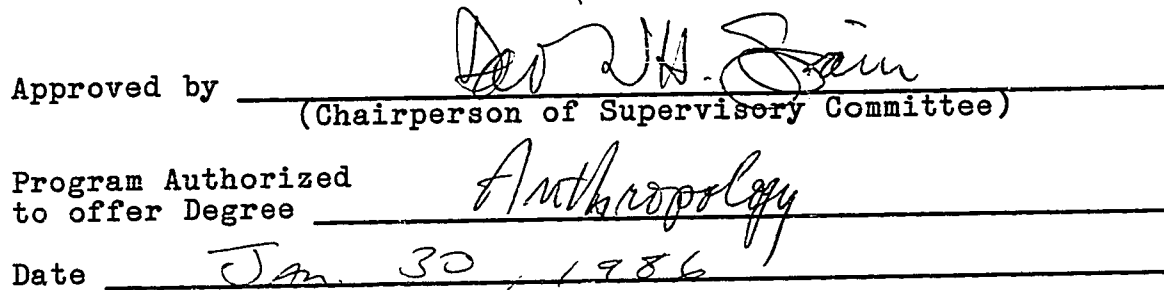 Approved by H. Spain
(Chairperson of Supervisory Committee)
Program Authorized
to offer Degree Anthropology
Date Jan. 30, 1986